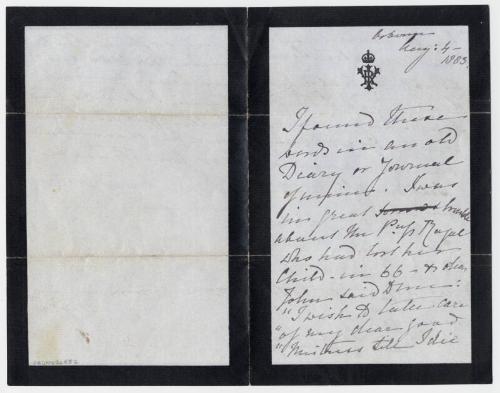 Osborne
Aug: 4 -
1883.
I found these
words in an old
Diary or Journal
of mine. I was
in great trouble
about the Pss Royal
who had lost her
Child - in 66 - & dear
John said to me:
"I wish to take care
"of my dear good
"Mistress till I die